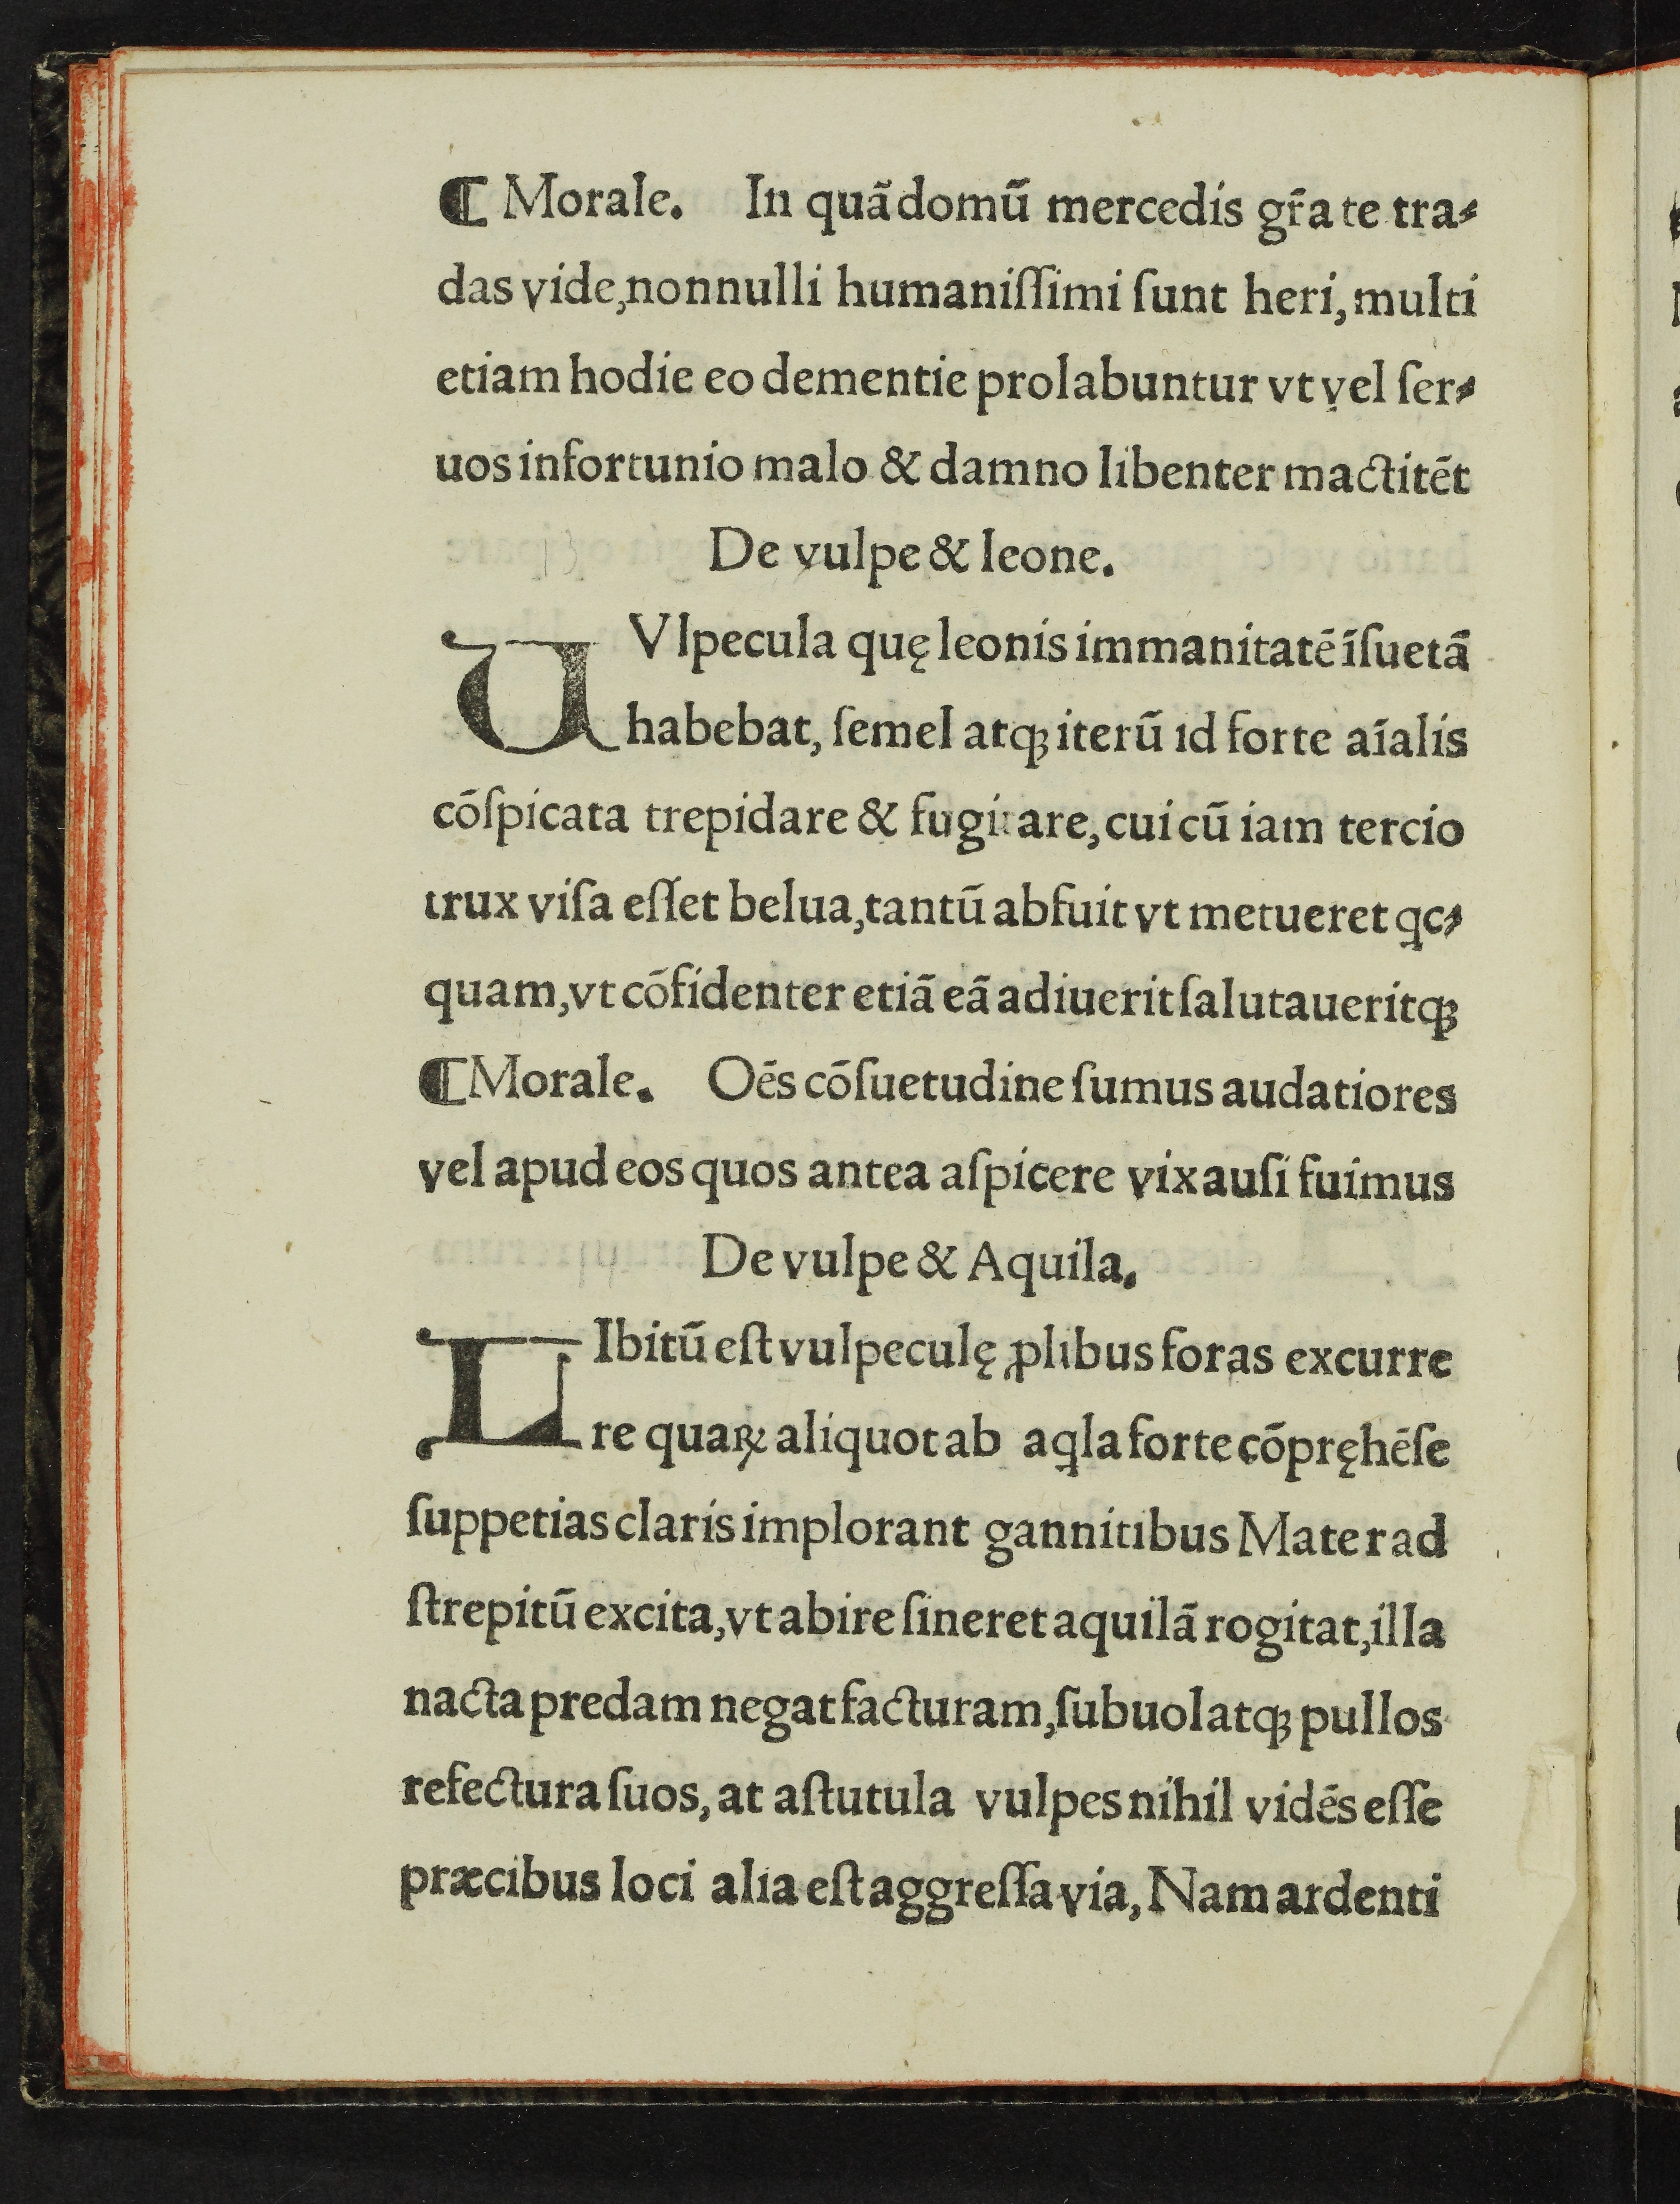 ¶ Morale. In quādomū mercedis gr̄a te tra⸗
das vide, nonnulli humaniſſimi ſunt heri, multi
etiam hodie eo dementie prolabuntur vt vel ſer⸗
uos infortunio malo & damno libenter mactitēt
De vulpe & leone.
UVlpecula quę leonis immanitatē īſuetā
habebat, ſemel atqꝫ iterū id forte aīalis
cōſpicata trepidare & fugitare, cui cū iam tercio
trux viſa eſſet belua, tantū abfuit vt metueret qc⸗
quam, vt cōfidenter etiā eā adiuerit ſalutaueritqꝫ
¶ Morale. Oēs cōſuetudine ſumus audatiores
vel apud eos quos antea aſpicere vix auſi fuimus
De vulpe & Aquila.
LIbitū eſt vulpeculę ꝓlibus foras excurre
re quaꝝ aliquot ab aqla forte cōpręhēſe
ſuppetias claris implorant gannitibus Mater ad
ſtrepitū excita, vt abire ſineret aquilā rogitat, illa
nacta predam negat facturam, ſubuolatqꝫ pullos
refectura ſuos, at aſtutula vulpes nihil vidēs eſſe
præcibus loci alia eſt aggreſſa via, Nam ardenti